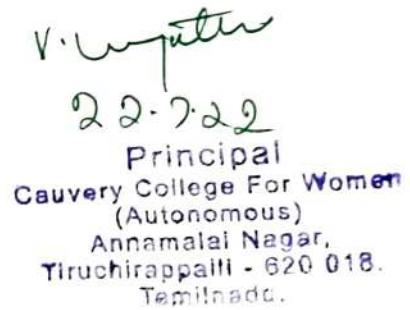 22.7.22
Principal
Cauvery College For Women
(Autonomous)
Annamalai Nagar,
Tiruchirappalli - 620 018.
Tamilnadu.